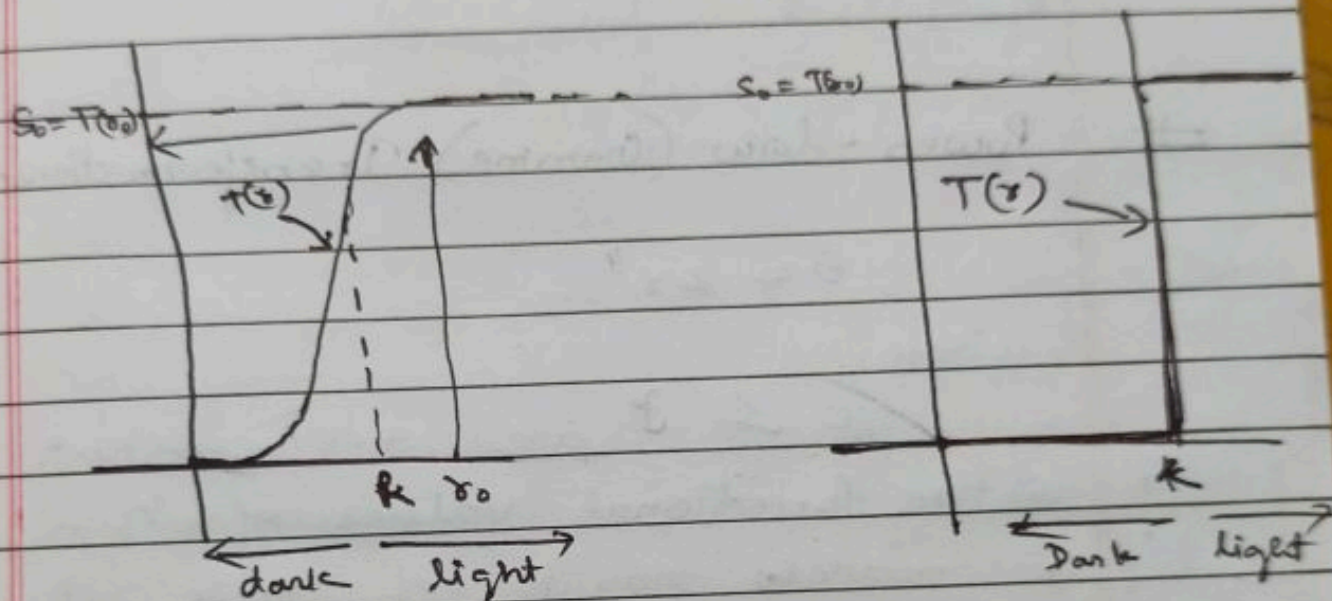 S₀ = T(r₀)
T(r)
k r₀
dark light
S₀ = T(r₀)
T(r)
k
Dark light